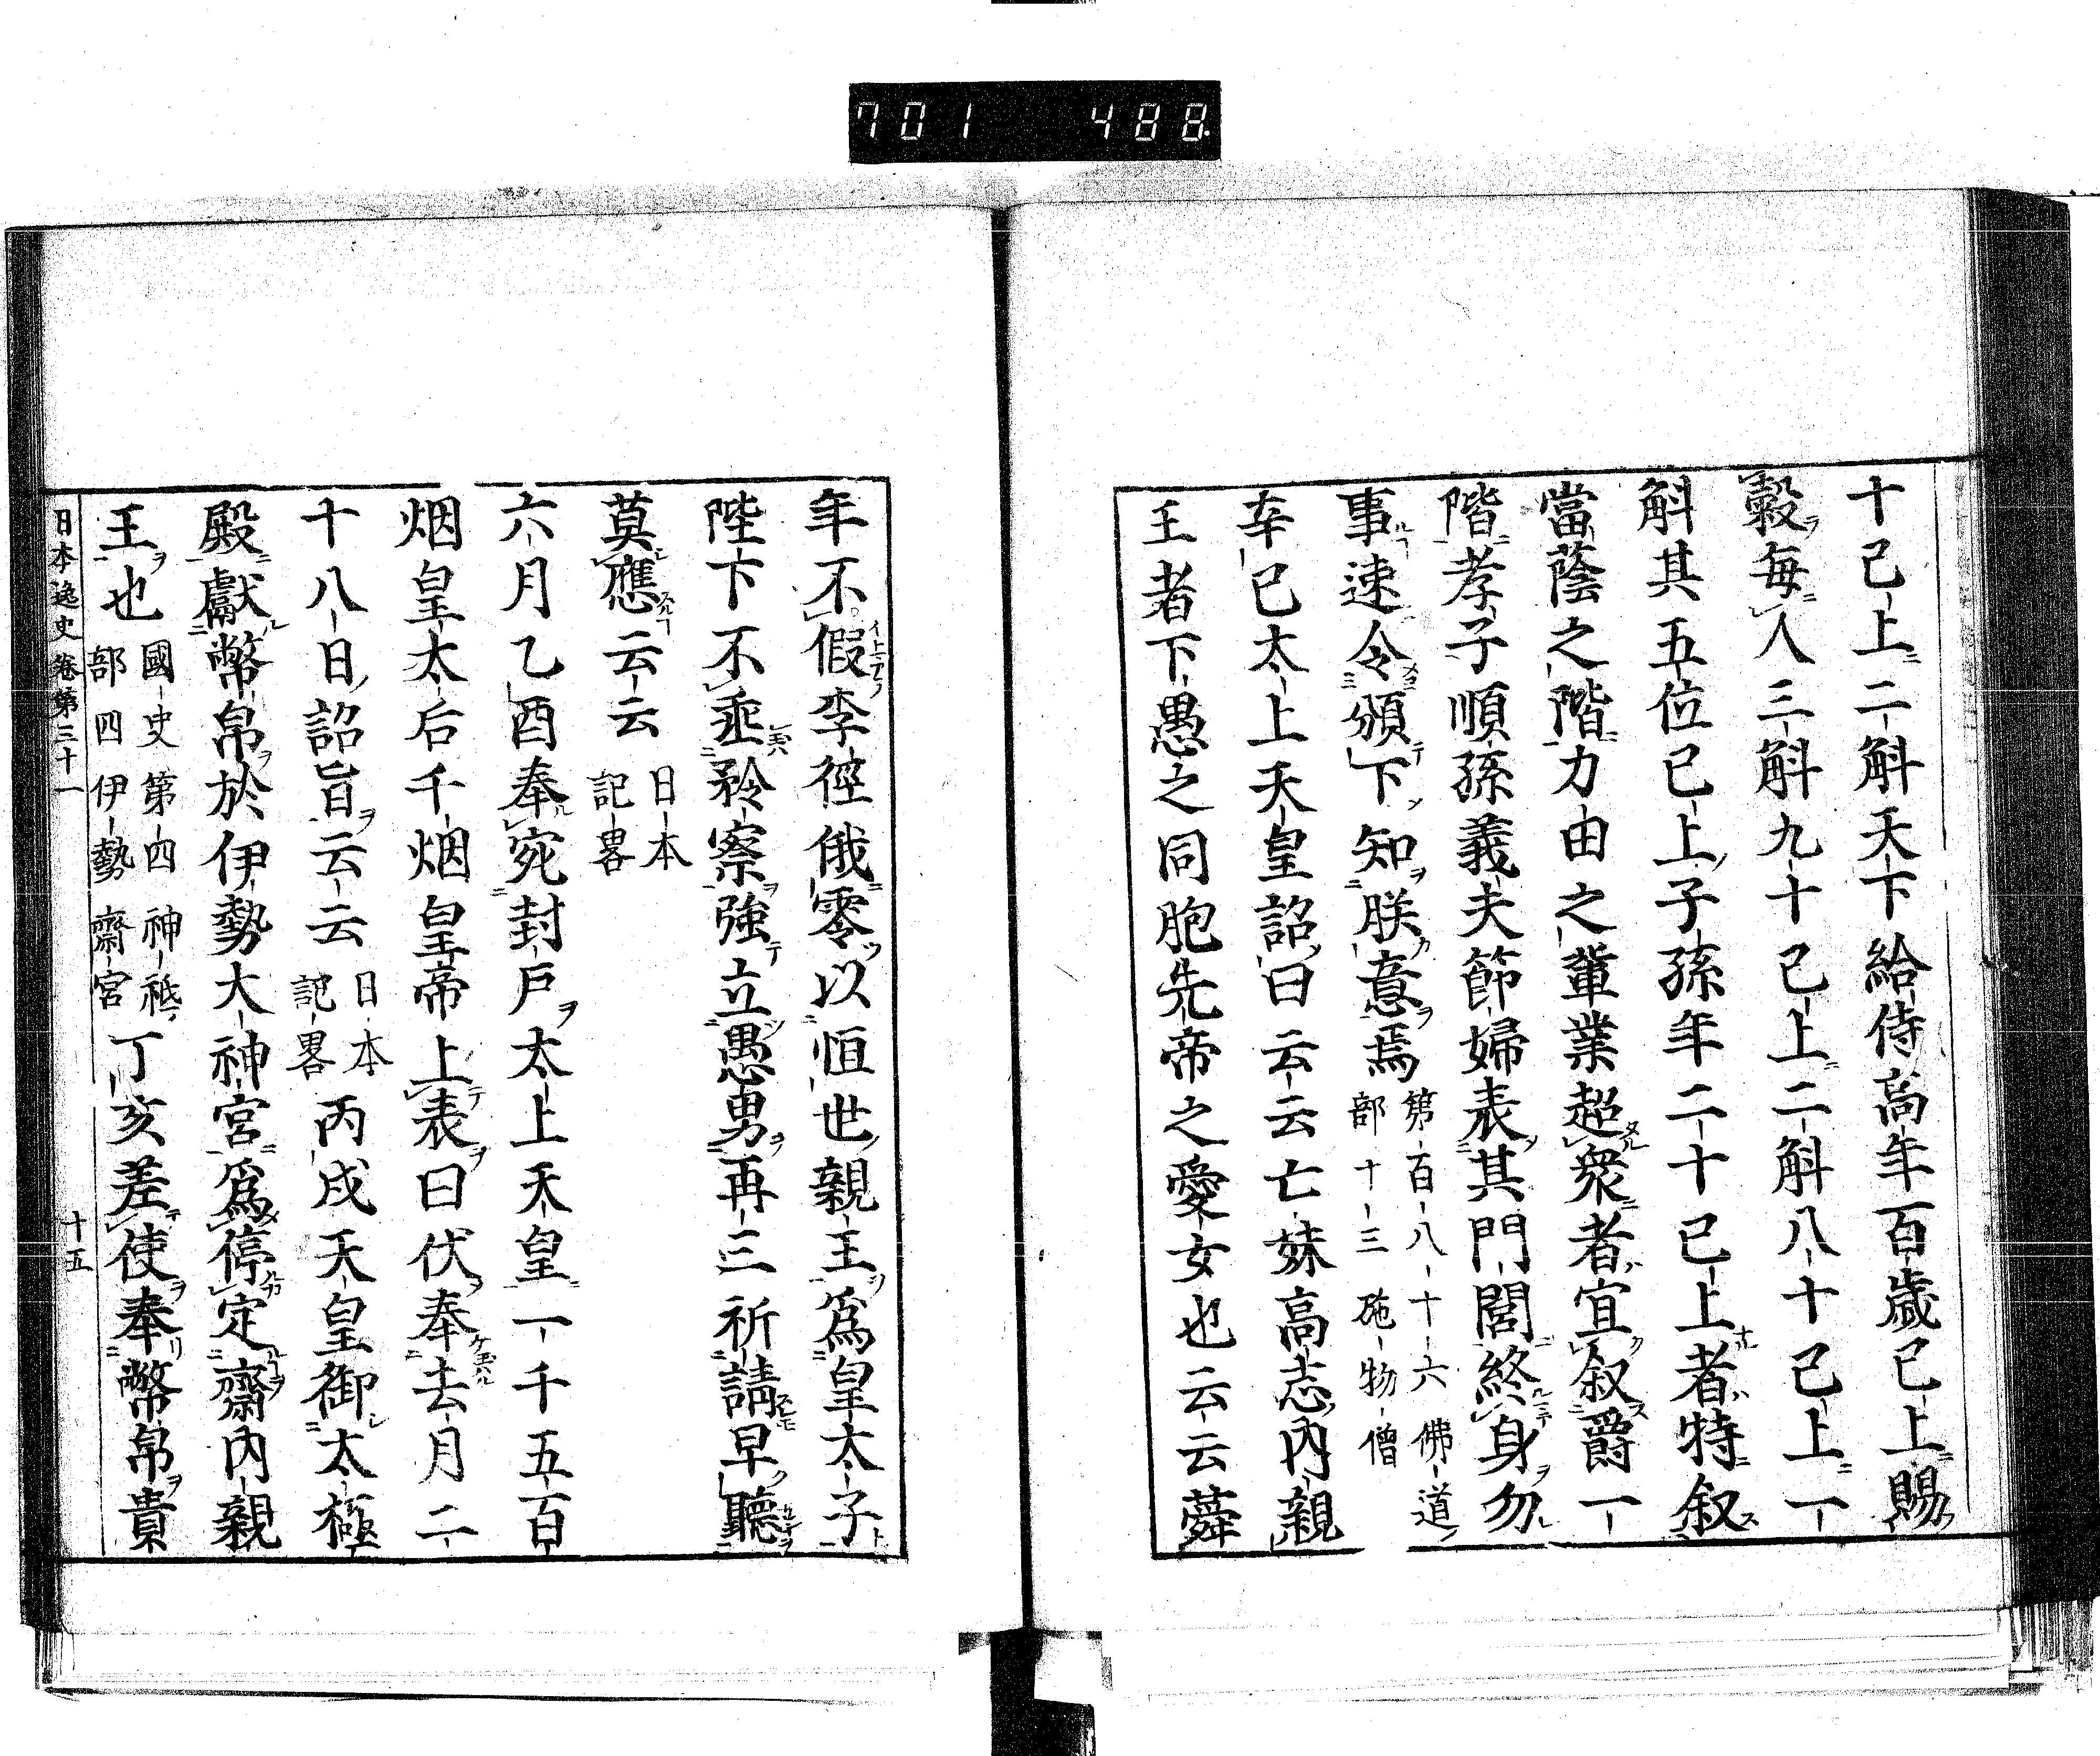 701 488
十已上二斛天下給侍高年百歲已上賜
穀每人三斛九十已上二斛八十已上一
斛其五位已上子孫年二十已上者特叙
當蔭之階力田之輩業超衆者宜叙爵一
階孝子順孫義夫節婦表其門閭終身勿
事速令頒下知朕意焉 第百八十六佛道
部十三施物僧
辛巳太上天皇詔曰云云亡妹高志內親
王者下愚之同胞先帝之愛女也云云蕣
年不假李徑俄零以恒世親王為皇太子
陛下不垂矜察強立愚男再三祈請早聽
莫應云云 日本
記畧
六月乙酉奉宛封戶太上天皇一千五百
烟皇太后千烟皇帝上表曰伏奉去月二
十八日詔旨云云 日本
記畧 丙戌天皇御太極
殿獻幣帛於伊勢大神宮為停定齋內親
王也 國史第四神祇
部四伊勢齋宮 丁亥差使奉幣帛貴
日本逸史 卷第三十一 十五